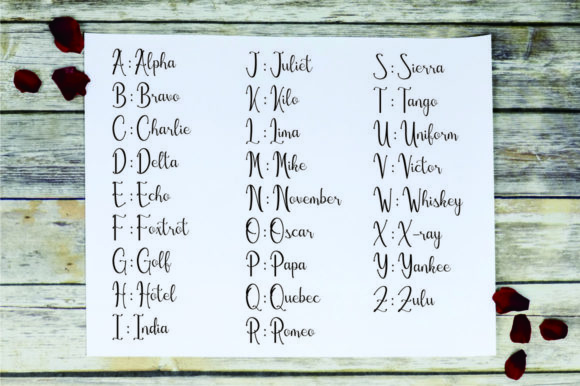 A : Alpha
B : Bravo
C : Charlie
D : Delta
E : Echo
F : Foxtrot
G : Golf
H : Hotel
I : India
J : Juliet
K : Kilo
L : Lima
M : Mike
N : November
O : Oscar
P : Papa
Q : Quebec
R : Romeo
S : Sierra
T : Tango
U : Uniform
V : Victor
W : Whiskey
X : X-ray
Y : Yankee
Z : Zulu